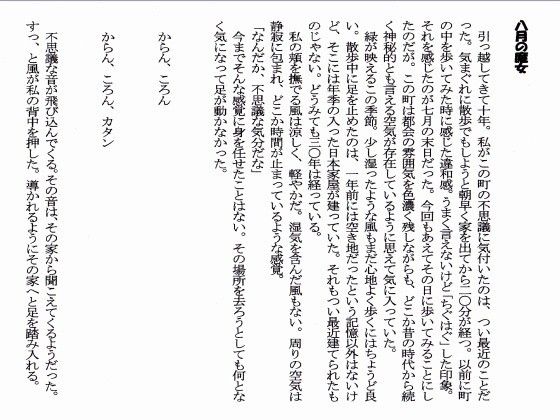 八月の魔女
引っ越してきて十年。私がこの町の不思議に気付いたのは、つい最近のことだ
った。気まぐれに散歩でもしようと朝早く家を出てから二〇分が経つ。以前に町
の中を歩いてみた時に感じた違和感。うまく言えないけど「ちぐはぐ」した印象。
それを感じたのが七月の末日だった。今回もあえてその日に歩いてみることにし
たのだが。この町は都会の雰囲気を色濃く残しながらも、どこか昔の時代から続
く神秘的とも言える空気が存在しているように思えて気に入っていた。
緑が映えるこの季節。少し湿ったような風もまだ心地よく歩くにはちょうど良
い。散歩中に足を止めたのは、一年前には空き地だったという記憶以外はないけ
ど、そこには年季の入った日本家屋が建っていた。それもつい最近建てられたも
のじゃない。どうみても三〇年は経っている。
私の頬を撫でる風は涼しく、軽やかだ。湿気を含んだ風もない。周りの空気は
静寂に包まれ、どこか時間が止まっているような感覚。
「なんだか、不思議な気分だな」
今までそんな感覚に身を任せたことはない。その場所を去ろうとしても何とな
く気になって足が動かなかった。
からん、ころん
からん、ころん、カタン
不思議な音が飛び込んでくる。その音は、その家から聞こえてくるようだった。
すっ、と風が私の背中を押した。導かれるようにその家へと足を踏み入れる。